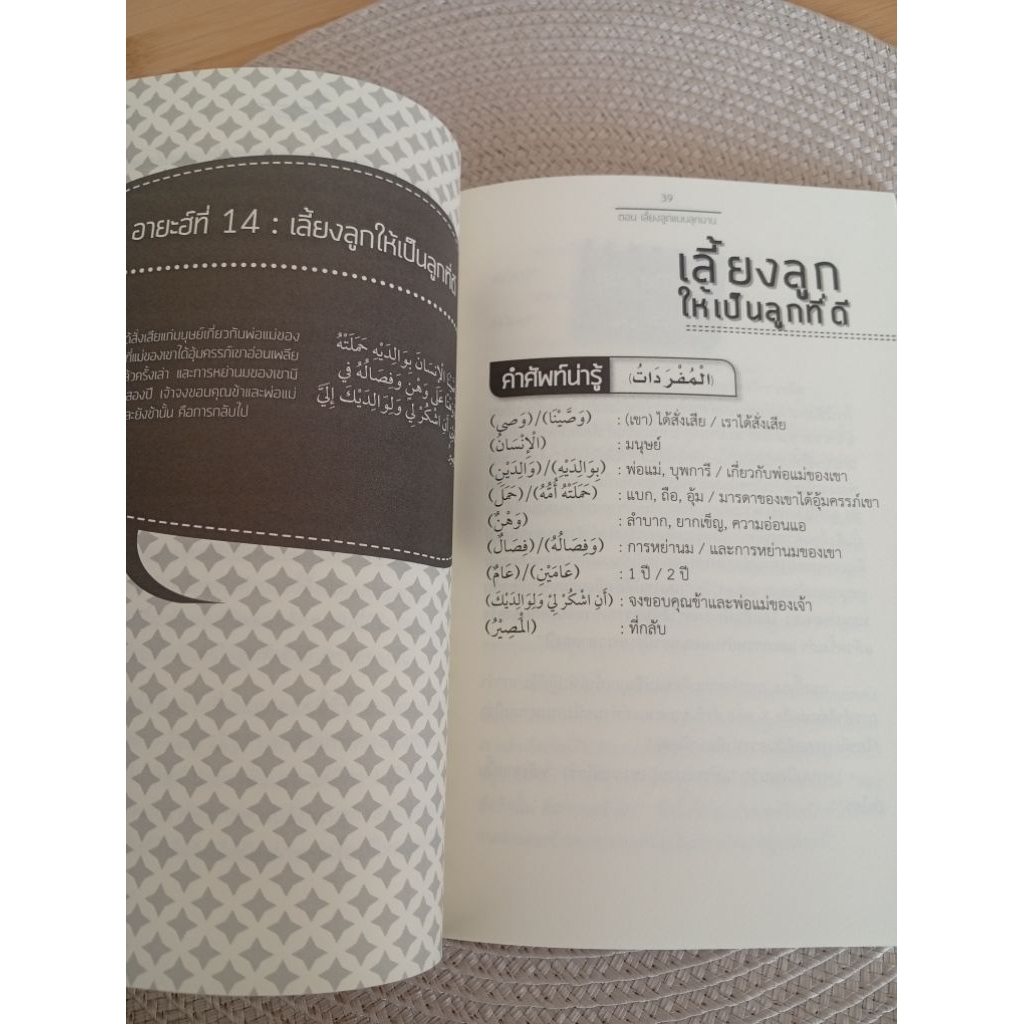 อายะฮ์ที่ 14 : เลี้ยงลูกให้เป็นลูกที่ดี
ได้สั่งเสียแก่มนุษย์เกี่ยวกับพ่อแม่ของ
ที่แม่ของเขาได้อุ้มครรภ์เขาอ่อนเพลีย
ครั้งเล่า และการหย่านมของเขามี
สองปี เจ้าจงขอบคุณข้าและพ่อแม่
และยังข้านั้น คือการกลับไป
الْإِنْسَانَ بِوَالِدَيْهِ حَمَلَتْهُ
عَلَى وَهْنٍ وَفِصَالُهُ فِي
أَنِ اشْكُرْ لِي وَلِوَالِدَيْكَ إِلَيَّ
39
ตอน เลี้ยงลูกแบบลุกมาน
เลี้ยงลูก
ให้เป็นลูกที่ดี
คำศัพท์น่ารู้ (الْمُفْرَدَاتُ)
(وَصَّيْنَا)/(وَصى) : (เขา) ได้สั่งเสีย / เราได้สั่งเสีย
(الْإِنْسَانُ) : มนุษย์
(بِوَالِدَيْهِ)/(وَالِدَيْنِ) : พ่อแม่, บุพการี / เกี่ยวกับพ่อแม่ของเขา
(حَمَلَتْهُ أُمُّهُ)/(حَمَلَ) : แบก, ถือ, อุ้ม / มารดาของเขาได้อุ้มครรภ์เขา
(وَهْنٌ) : ลำบาก, ยากเข็ญ, ความอ่อนแอ
(وَفِصَالُهُ)/(فِصَالٌ) : การหย่านม / และการหย่านมของเขา
(عَامَيْنِ)/(عَامٌ) : 1 ปี / 2 ปี
(أَنِ اشْكُرْ لِيْ وَلِوَالِدَيْكَ) : จงขอบคุณข้าและพ่อแม่ของเจ้า
(الْمَصِيْرُ) : ที่กลับ